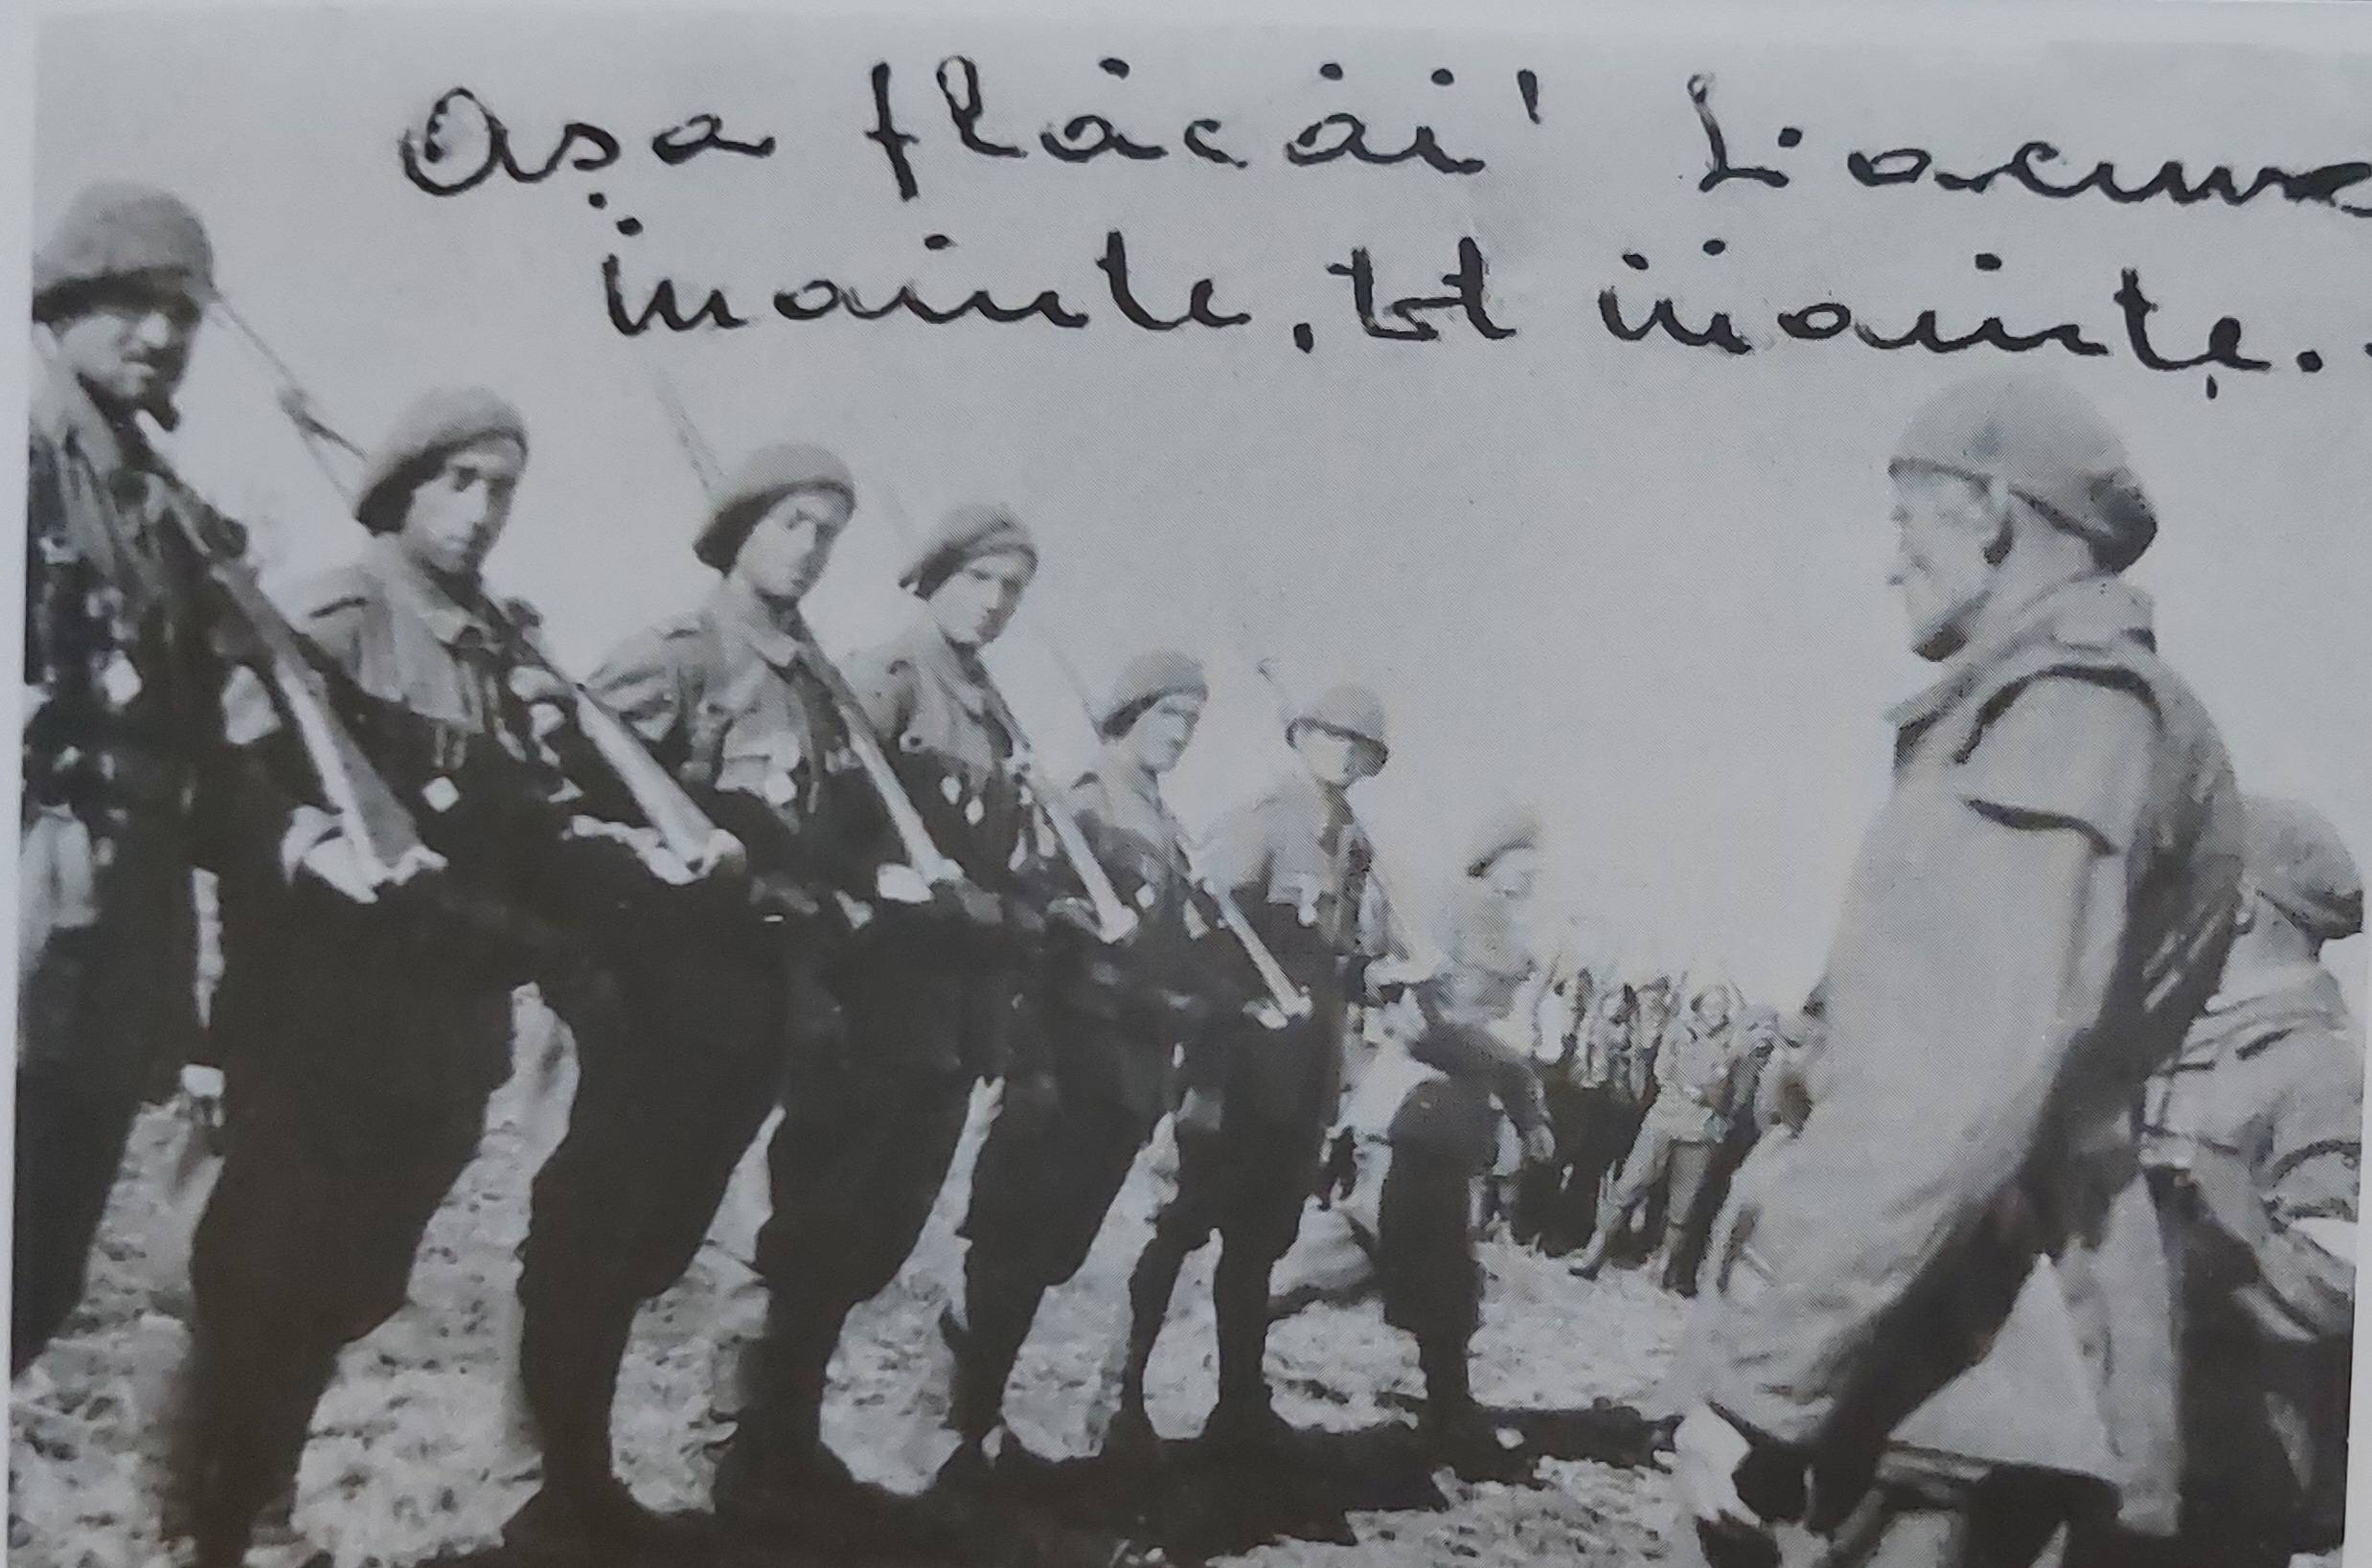 Așa flăcăi! Și acum
înainte, tot înainte..